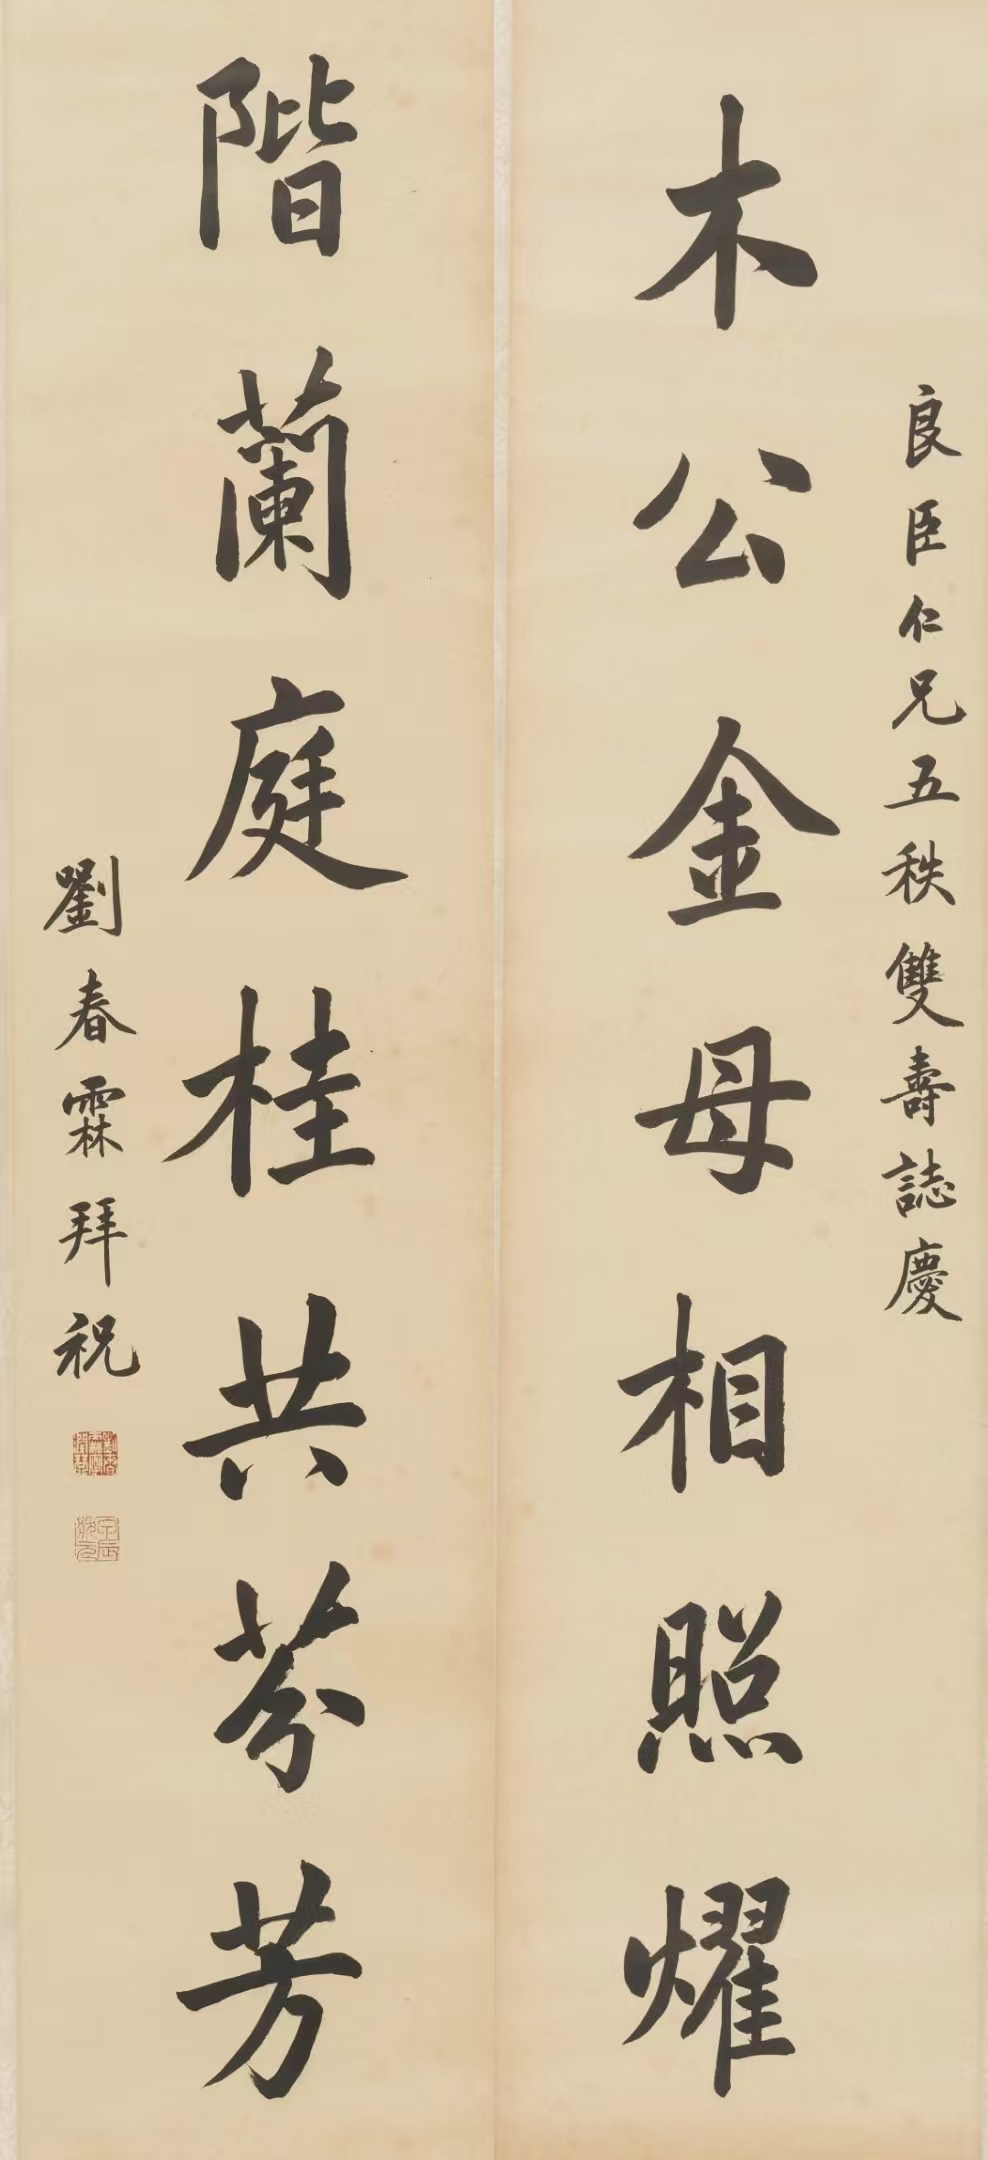 良臣仁兄五秩雙壽誌慶
木公金母相照耀
階蘭庭桂共芬芳
劉春霖拜祝